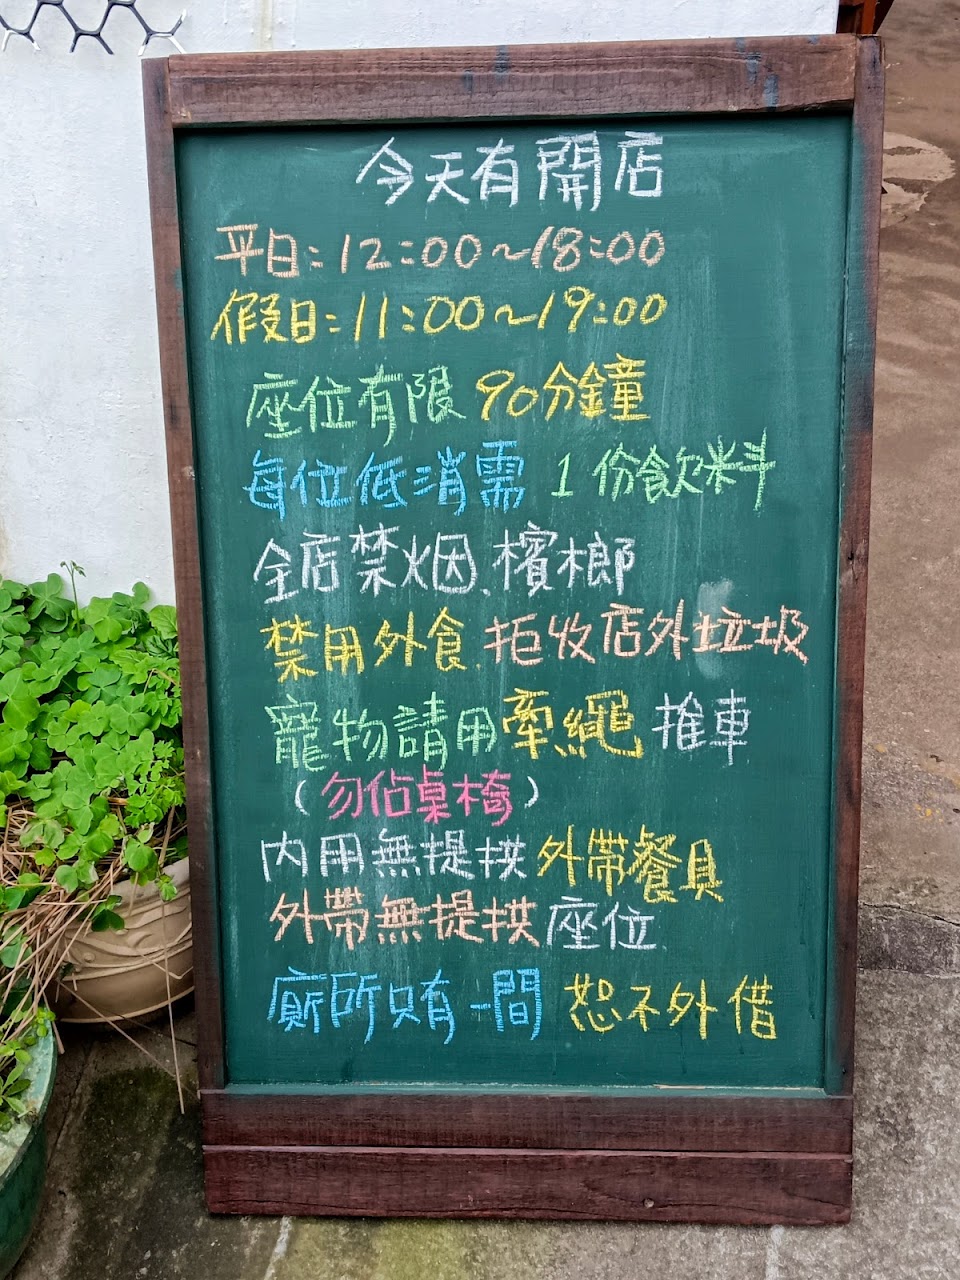 今天有開店
平日:12:00~18:00
假日:11:00~19:00
座位有限 90分鐘
每位低消需 1份飲料
全店禁烟、檳榔
禁用外食、拒收店外垃圾
寵物請用牽繩 推車
(勿佔桌椅)
內用無提拱外帶餐具
外帶無提拱座位
廁所只有一間 恕不外借